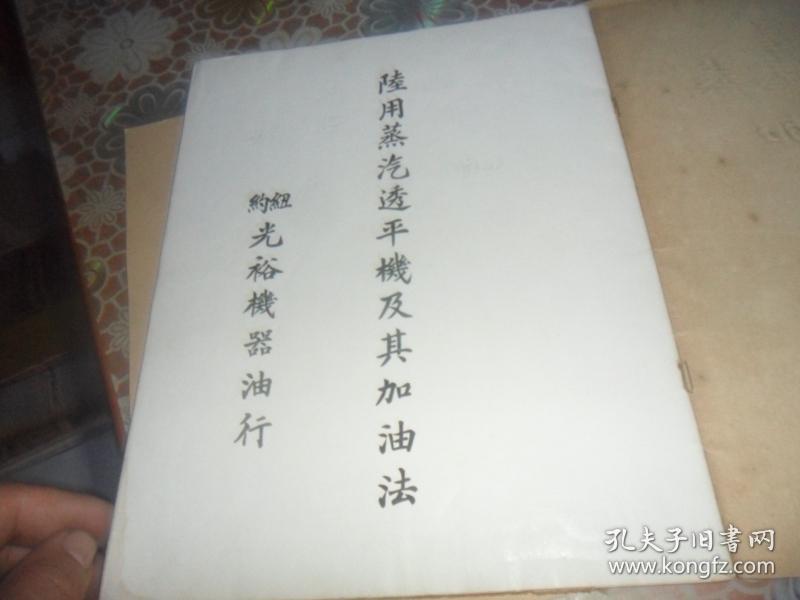 陸用蒸汽透平機及其加油法
紐約
光裕機器油行
孔夫子旧書网
www.kongfz.com